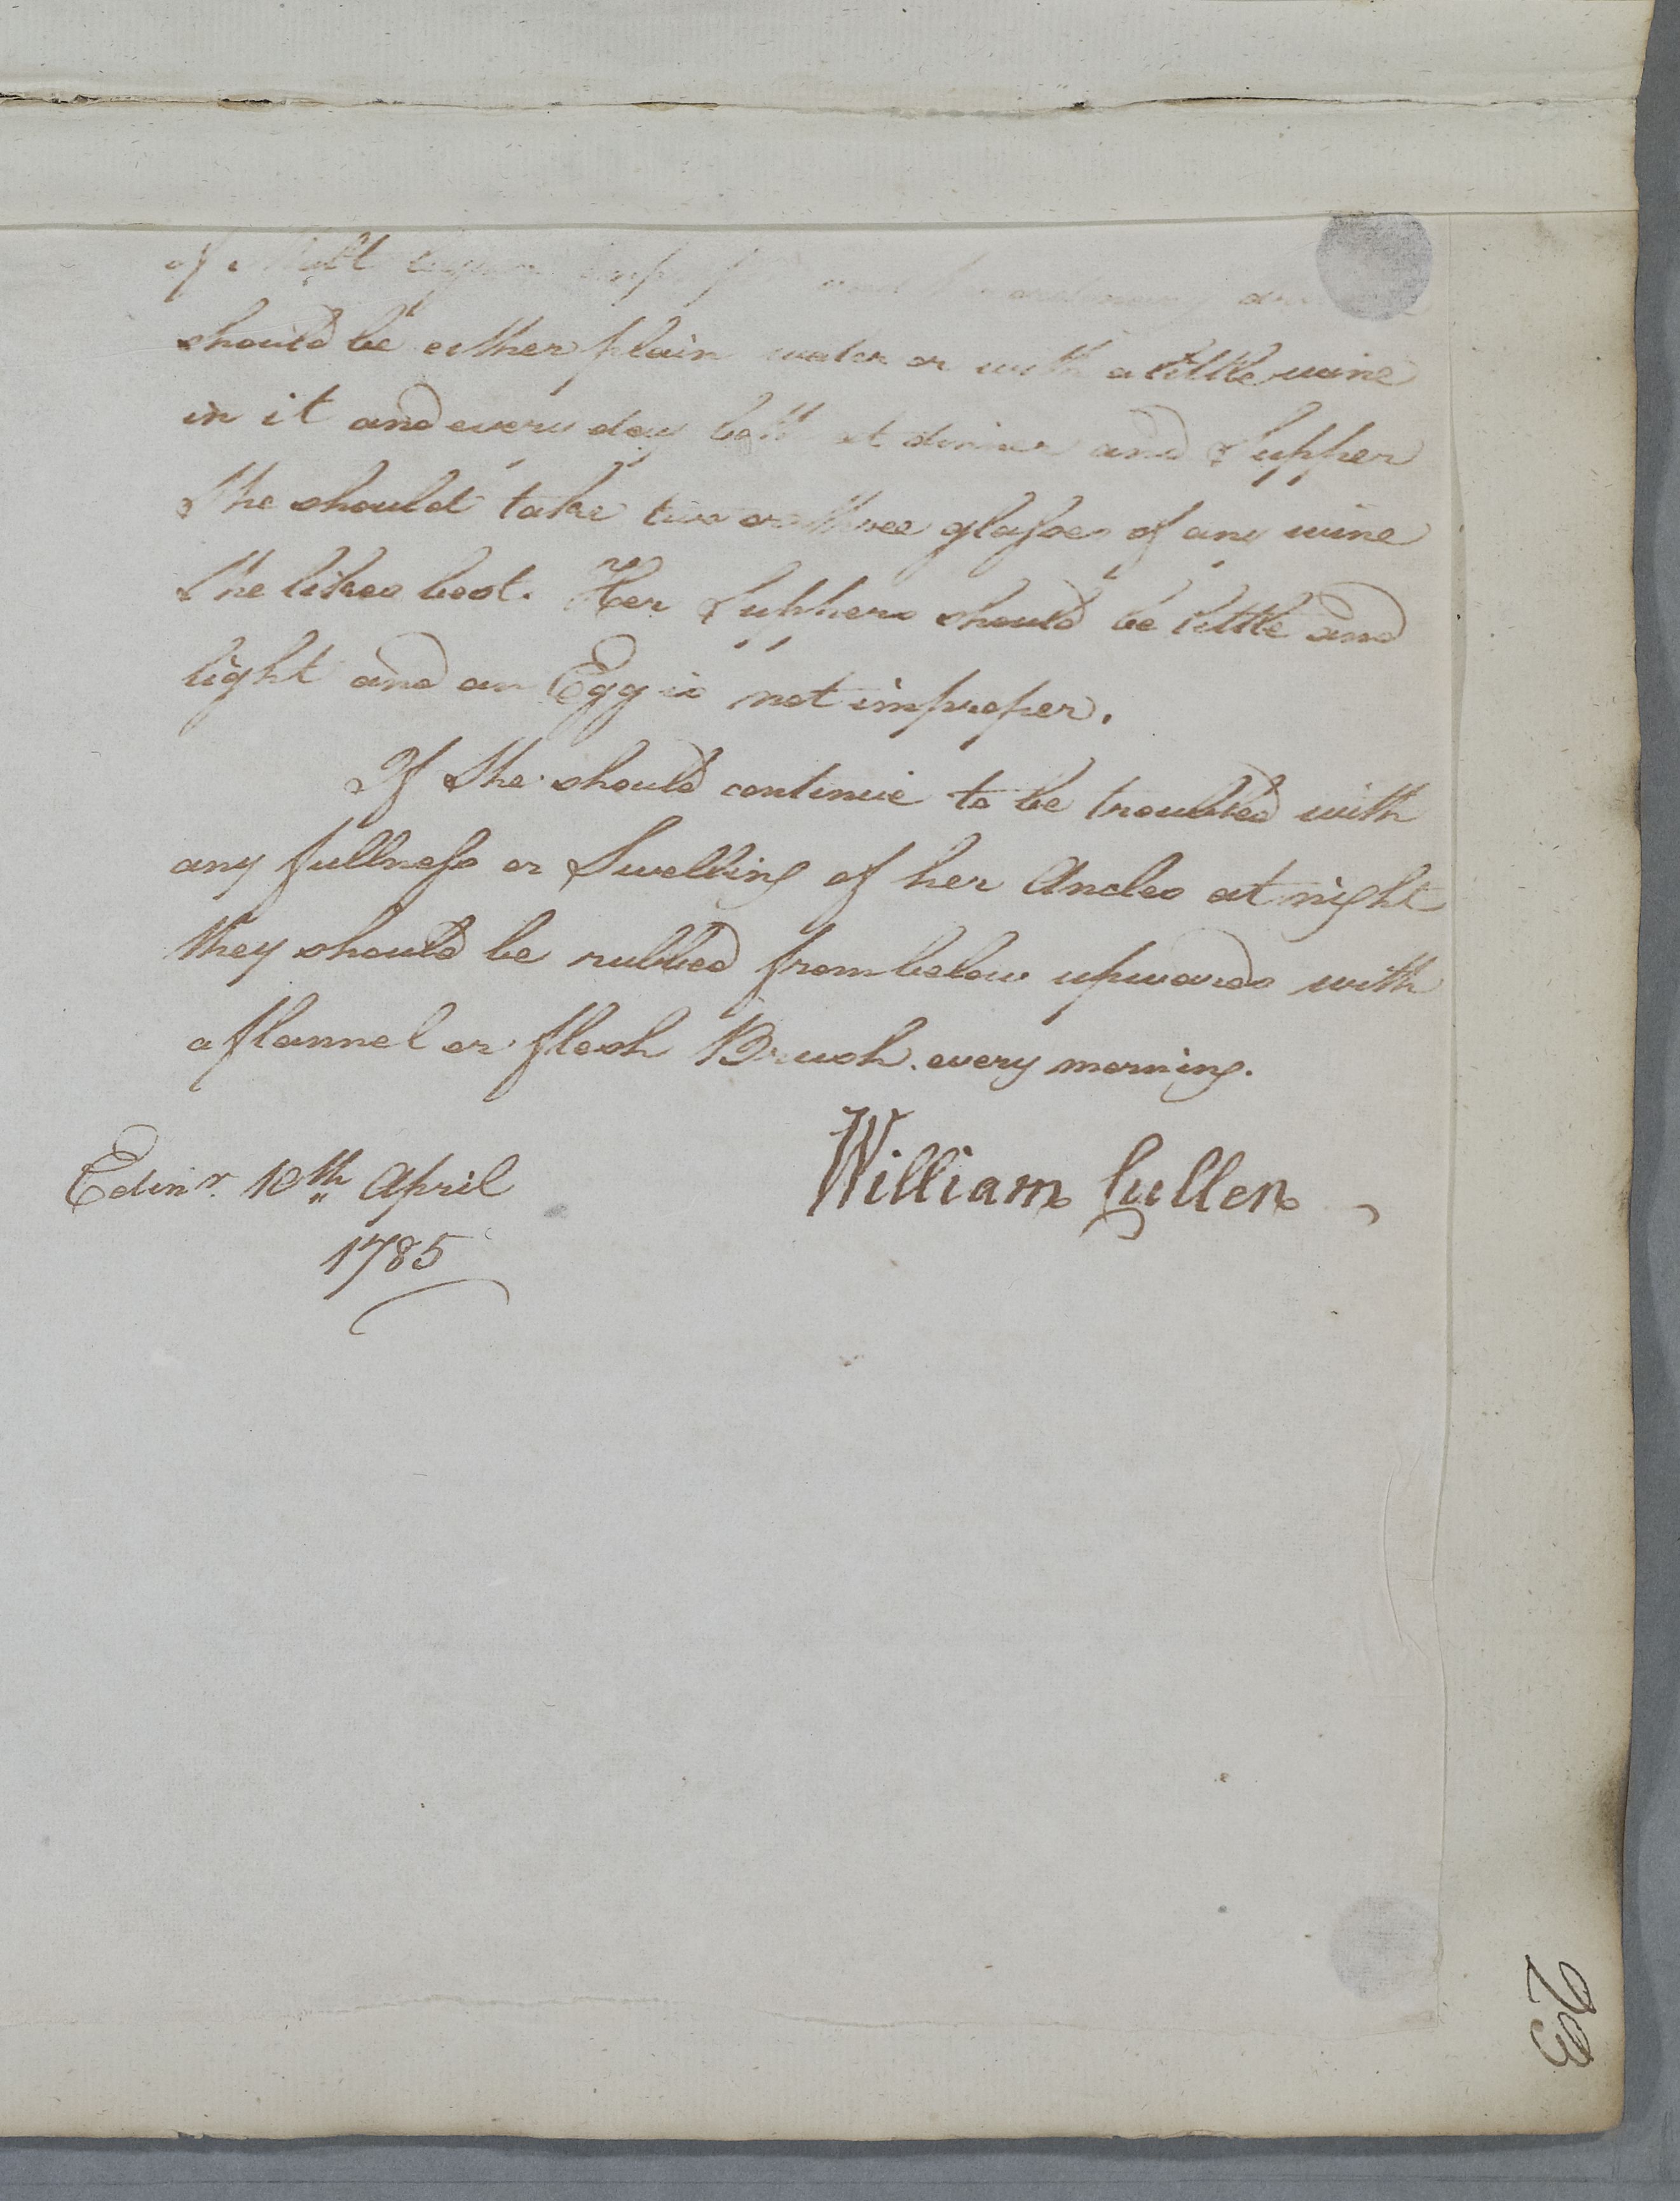 of Malt and ordinary
should be either plain water or with a little wine
in it and every day both at dinner and Supper
She should take two or three glasses of any wine
She likes best. Her Suppers should be little and
light and an Egg is not improper.
If She should continue to be troubled with
any fullness or Swelling of her Ancles at night
they should be rubbed from below upwards with
a flannel or flesh Brush every morning.
William Cullen
Edinr. 10th April
1785
203